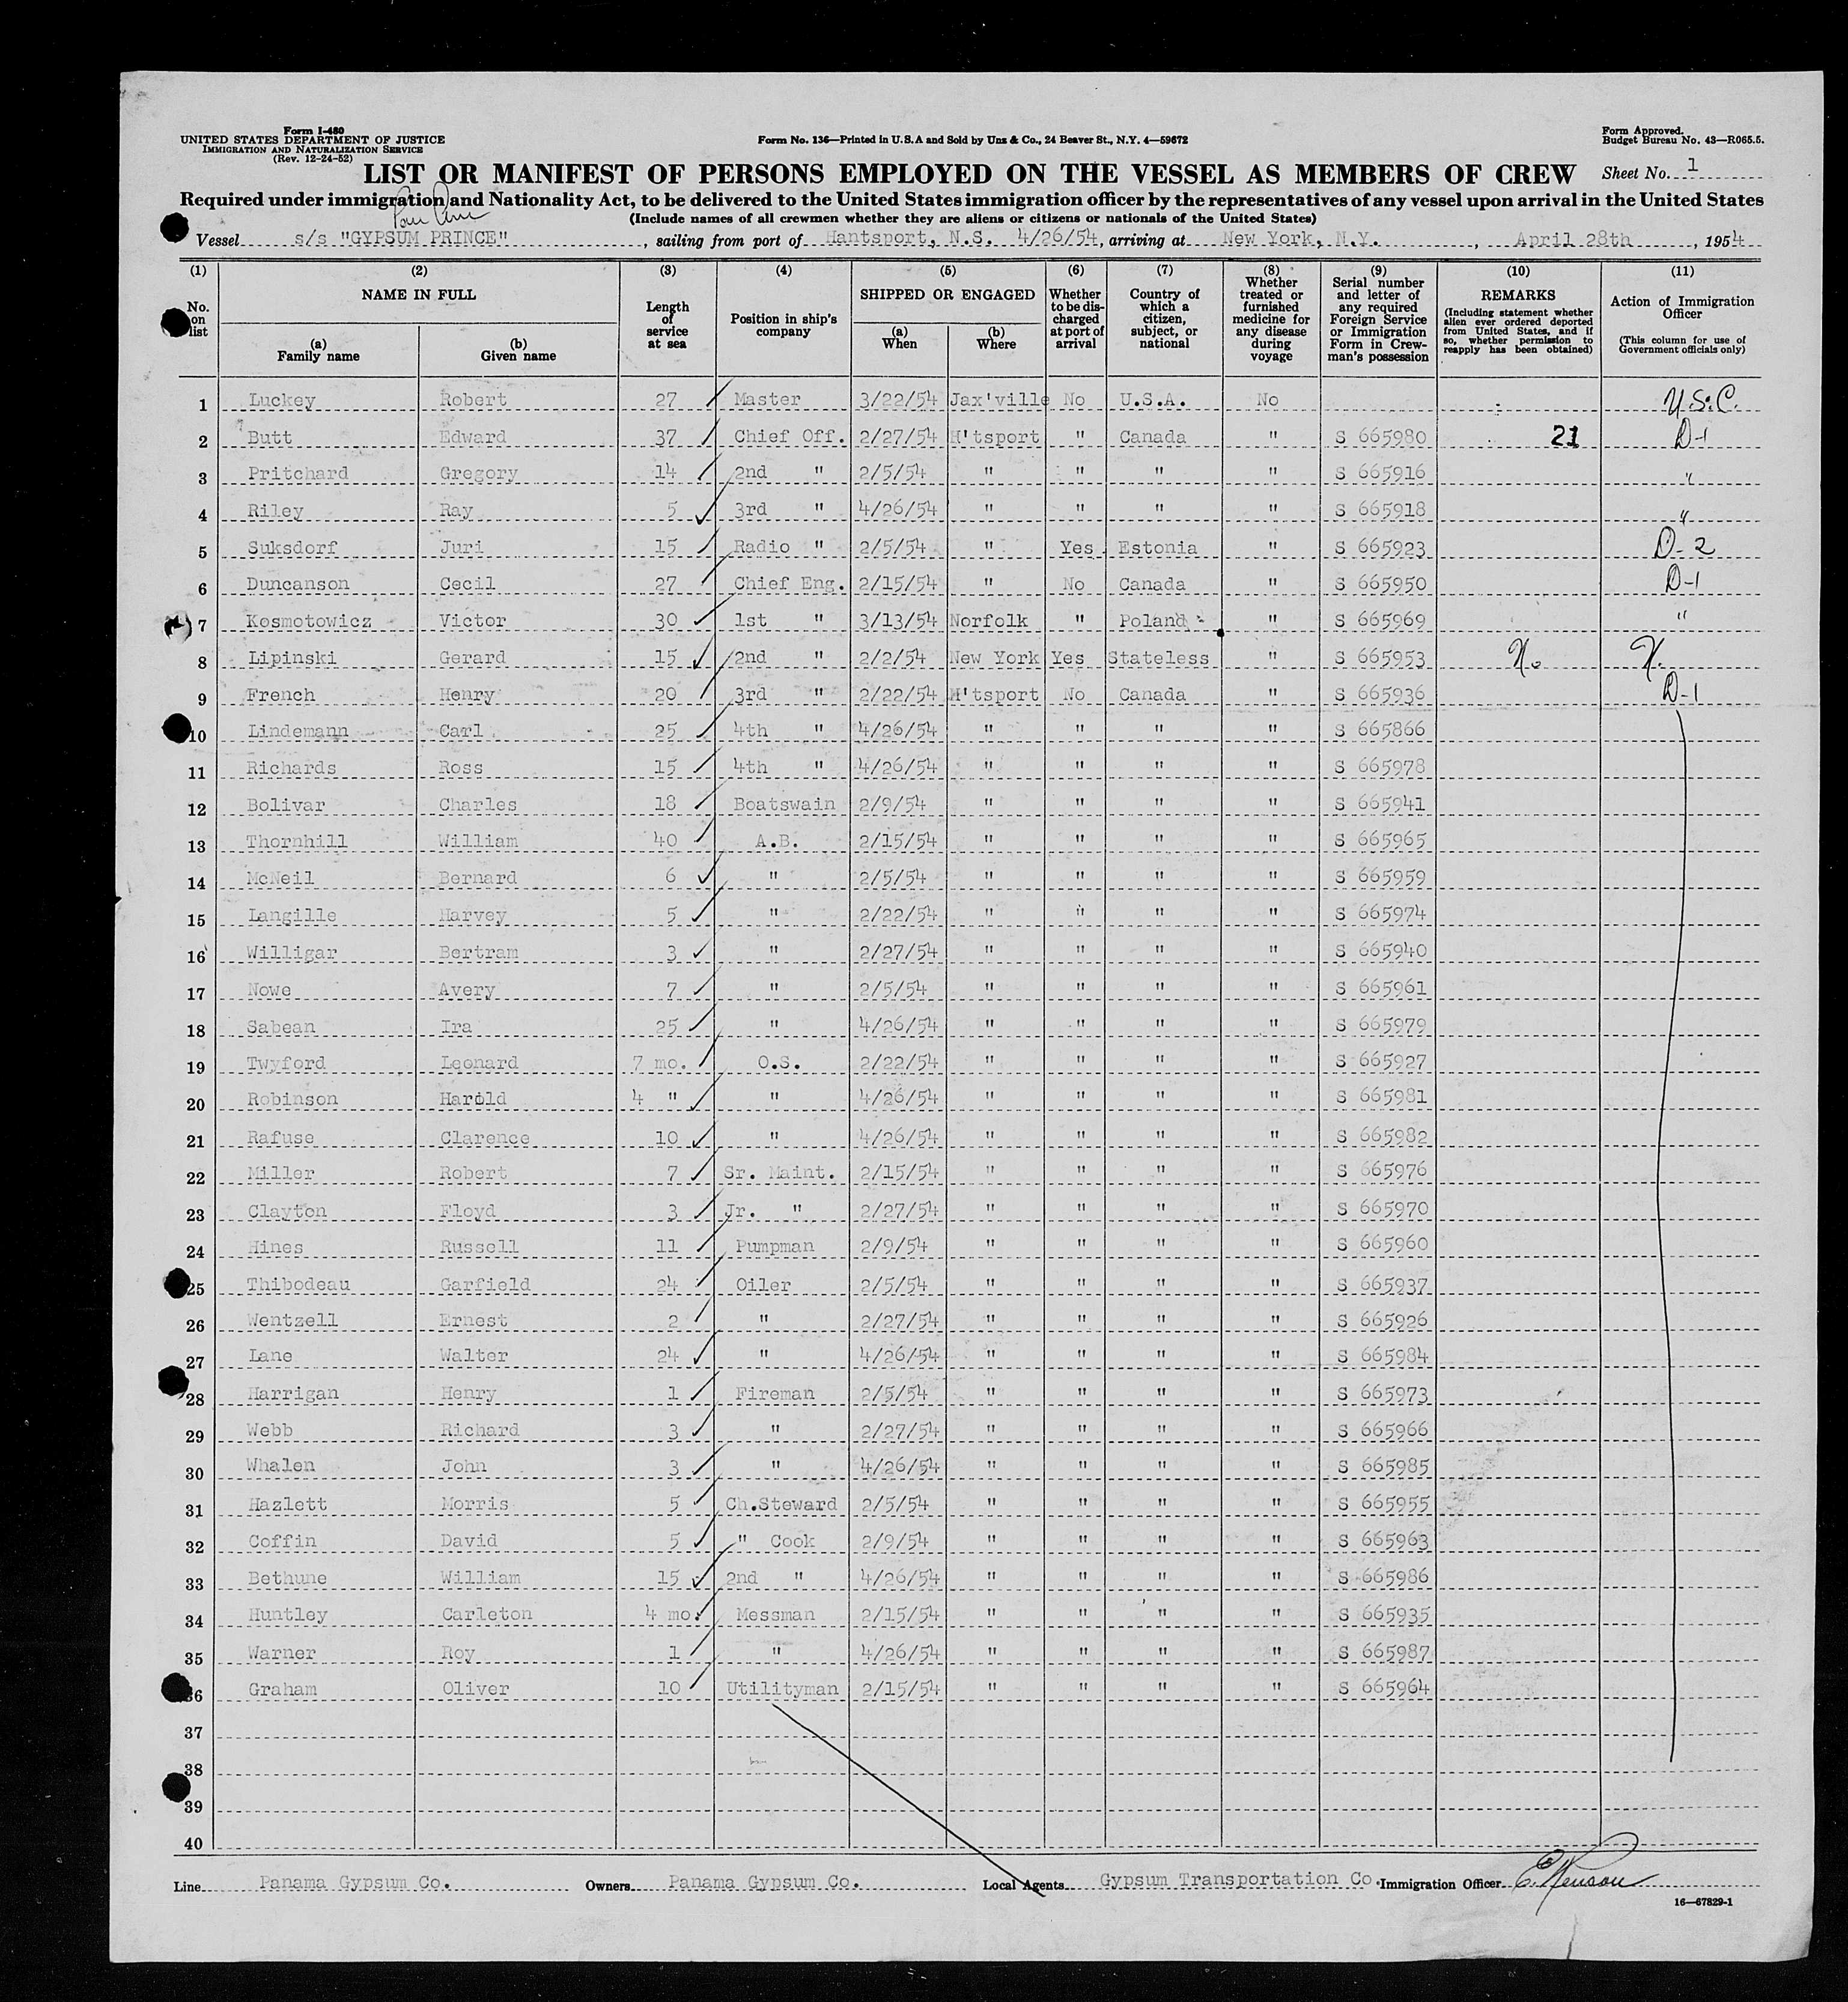 Form I-480
UNITED STATES DEPARTMENT OF JUSTICE
IMMIGRATION AND NATURALIZATION SERVICE
(Rev. 12-24-52)
Form No. 136—Printed in U.S.A and Sold by Unz & Co., 24 Beaver St., N.Y. 4—59672
Form Approved.
Budget Bureau No. 43—R065.5.
LIST OR MANIFEST OF PERSONS EMPLOYED ON THE VESSEL AS MEMBERS OF CREW
Sheet No. 1
Required under immigration and Nationality Act, to be delivered to the United States immigration officer by the representatives of any vessel upon arrival in the United States
(Include names of all crewmen whether they are aliens or citizens or nationals of the United States)
Vessel s/s "GYPSUM PRINCE", sailing from port of Hantsport, N.S. 4/26/54, arriving at New York, N.Y., April 28th, 1954
(1) (2) (3) (4) (5) (6) (7) (8) (9) (10) (11)
No. on list
NAME IN FULL
(a) Family name
(b) Given name
Length of service at sea
Position in ship's company
SHIPPED OR ENGAGED
(a) When
(b) Where
Whether to be discharged at port of arrival
Country of which a citizen, subject, or national
Whether treated or furnished medicine for any disease during voyage
Serial number and letter of any required Foreign Service or Immigration Form in Crewman's possession
REMARKS
(Including statement whether alien ever ordered deported from United States, and if so, whether permission to reapply has been obtained)
Action of Immigration Officer
(This column for use of Government officials only)
1 Luckey Robert 27 Master 3/22/54 Jax'ville No U.S.A. No U.S.C.
2 Butt Edward 37 Chief Off. 2/27/54 H'tsport " Canada " S 665980 21 D-1
3 Pritchard Gregory 14 2nd " 2/5/54 " " " " S 665916 "
4 Riley Ray 5 3rd " 4/26/54 " " " " S 665918 "
5 Suksdorf Juri 15 Radio " 2/5/54 " Yes Estonia " S 665923 D-2
6 Duncanson Cecil 27 Chief Eng. 2/15/54 " No Canada " S 665950 D-1
7 Kosmotowicz Victor 30 1st " 3/13/54 Norfolk " Poland " S 665969 "
8 Lipinski Gerard 15 2nd " 2/2/54 New York Yes Stateless " S 665953
9 French Henry 20 3rd " 2/22/54 H'tsport No Canada " S 665936 D-1
10 Lindemann Carl 25 4th " 4/26/54 " " " " S 665866
11 Richards Ross 15 4th " 4/26/54 " " " " S 665978
12 Bolivar Charles 18 Boatswain 2/9/54 " " " " S 665941
13 Thornhill William 40 A.B. 2/15/54 " " " " S 665965
14 McNeil Bernard 6 " 2/5/54 " " " " S 665959
15 Langille Harvey 5 " 2/22/54 " " " " S 665974
16 Willigar Bertram 3 " 2/27/54 " " " " S 665940
17 Nowe Avery 7 " 2/5/54 " " " " S 665961
18 Sabean Ira 25 " 4/26/54 " " " " S 665979
19 Twyford Leonard 7 mo. O.S. 2/22/54 " " " " S 665927
20 Robinson Harold 4 " " 4/26/54 " " " " S 665981
21 Rafuse Clarence 10 " 4/26/54 " " " " S 665982
22 Miller Robert 7 Sr. Maint. 2/15/54 " " " " S 665976
23 Clayton Floyd 3 Jr. " 2/27/54 " " " " S 665970
24 Hines Russell 11 Pumpman 2/9/54 " " " " S 665960
25 Thibodeau Garfield 24 Oiler 2/5/54 " " " " S 665937
26 Wentzell Ernest 2 " 2/27/54 " " " " S 665926
27 Lane Walter 24 " 4/26/54 " " " " S 665984
28 Harrigan Henry 1 Fireman 2/5/54 " " " " S 665973
29 Webb Richard 3 " 2/27/54 " " " " S 665966
30 Whalen John 3 " 4/26/54 " " " " S 665985
31 Hazlett Morris 5 Ch.Steward 2/5/54 " " " " S 665955
32 Coffin David 5 " Cook 2/9/54 " " " " S 665963
33 Bethune William 15 2nd " 4/26/54 " " " " S 665986
34 Huntley Carleton 4 mo. Messman 2/15/54 " " " " S 665935
35 Warner Roy 1 " 4/26/54 " " " " S 665987
36 Graham Oliver 10 Utilityman 2/15/54 " " " " S 665964
37
38
39
40
Line Panama Gypsum Co. Owners Panama Gypsum Co. Local Agents Gypsum Transportation Co. Immigration Officer
16—67829-1